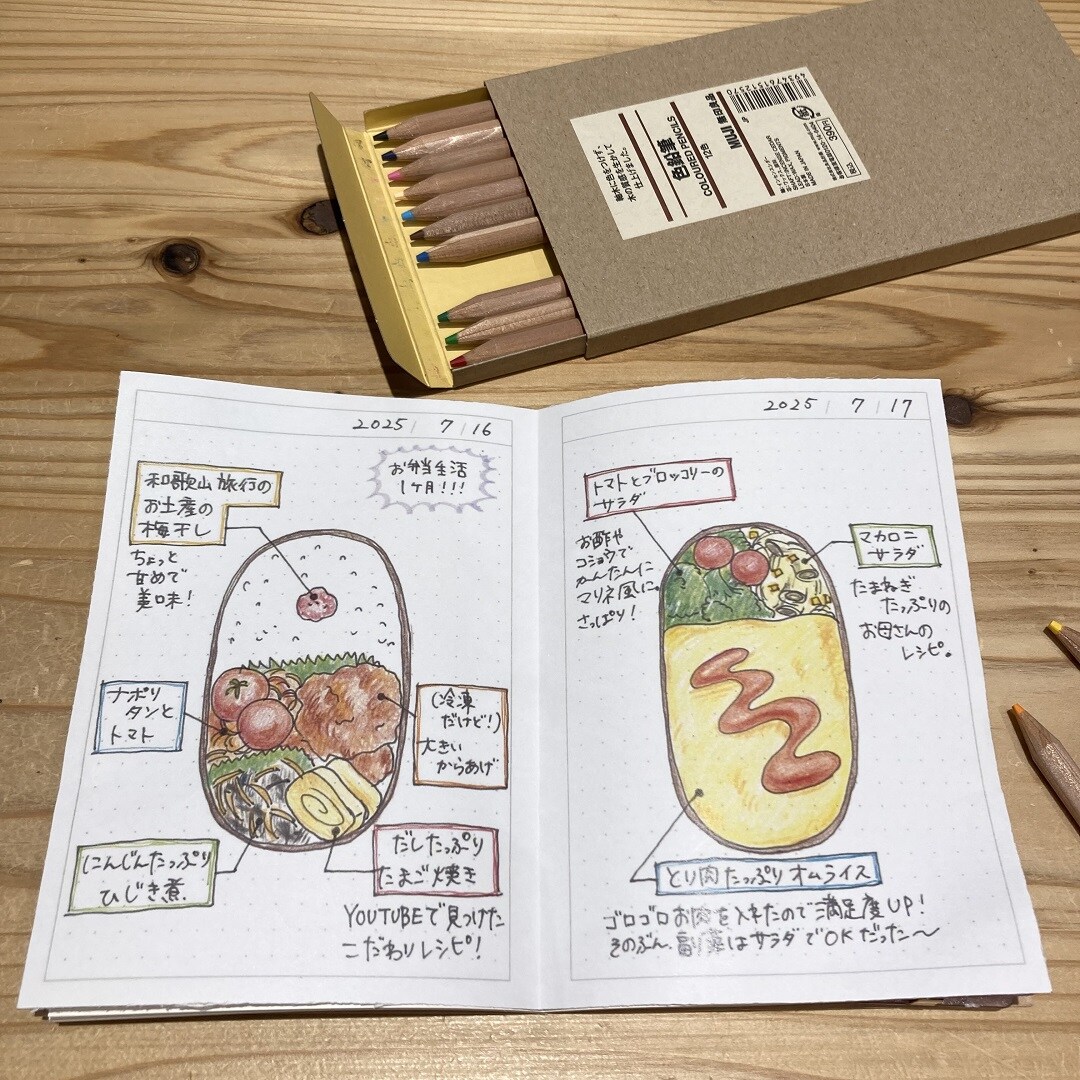 無木に色をつけず、
木の質感を生かして
仕上げました。
色鉛筆
COLOURED PENCILS
12色
MUJI 無印良品
4934761512570
MADE IN JAPAN
390円
税込
2025 7 16
お弁当生活
1ヶ月!!!
和歌山旅行の
お土産の
梅干し
ちょっと
甘めで
美味!
ナポリ
タンと
トマト
(冷凍
だけど!)
大きい
からあげ
にんじんたっぷり
ひじき煮
だしたっぷり
たまご焼き
YOUTUBEで見つけた
こだわりレシピ!
2025 7 17
トマトとブロッコリーの
サラダ
お酢や
コショウで
かんたんに
マリネ風に。
さっぱり!
マカロニ
サラダ
たまねぎ
たっぷりの
お母さんの
レシピ。
とり肉たっぷりオムライス
ゴロゴロお肉を入れたので満足度UP!
そのぶん、副菜はサラダでOKだった〜